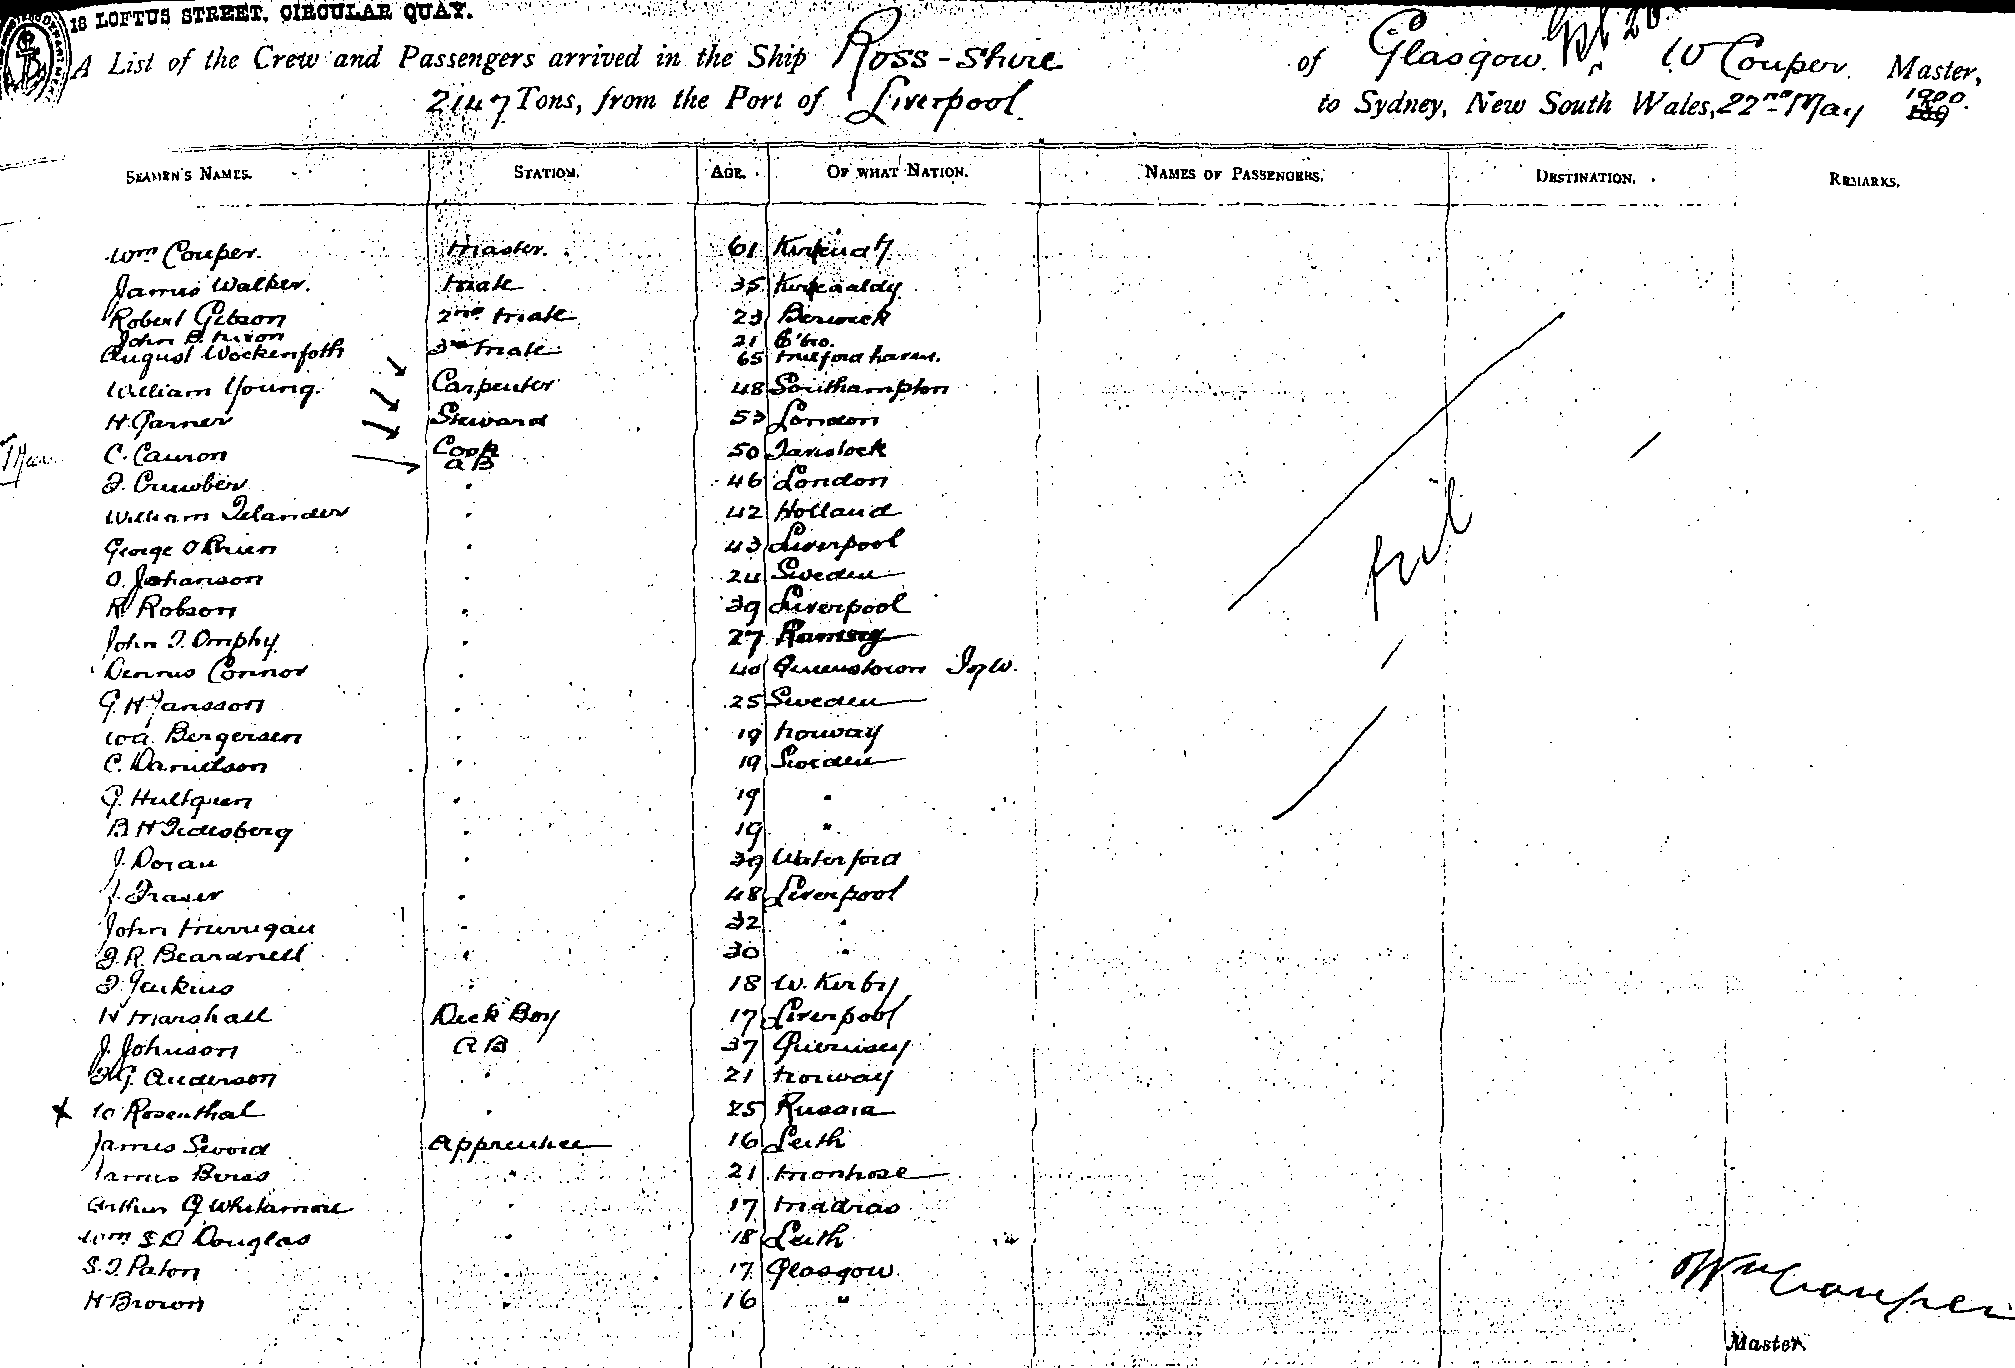 18 LOFTUS STREET, CIRCULAR QUAY.
A List of the Crew and Passengers arrived in the Ship Ross-shire of Glasgow W Couper Master,
2147 Tons, from the Port of Liverpool to Sydney, New South Wales, 22nd May 1900.
SEAMEN'S NAMES. STATION. AGE. OF WHAT NATION. NAMES OF PASSENGERS. DESTINATION. REMARKS.
Wm Couper. Master. 61
James Walker. Mate 35 Kirkcaldy
Robert Gibson 2nd Mate 23 Berwick
John B. Nixon 21
August Wockenfoth 3rd Mate 65 Milford haven.
William Young. Carpenter 48 Southampton
H Garner Steward 53 London
C. Cawron Cook 50
AB
46 London
William " 42 Holland
George O Brien " 43 Liverpool
O. Johanson " 24 Sweden
R Robson " 39 Liverpool
John T. " 27 Ramsey
Dennis Connor " 40 Queenstown
G. H Jansson " 25 Sweden
Bergersen " 19 Norway
C. Danielson " 19 Sweden
G. Hultgren " 19 "
B H " 19 "
J. Doran " 39 Waterford
J. Fraser " 48 Liverpool
John " 32 "
F. R. Beardnell " 30 "
F. Jenkins " 18 W. Kirby
H Marshall Deck Boy 17 Liverpool
J. Johnson AB 37 Guernsey
Anderson " 21 Norway
x W Rosenthal " 25 Russia
James Sword Apprentice 16 Leith
James " 21 Montrose
Arthur G Whitamore " 17 Madras
Wm S. D Douglas " 18 Leith
S. T. Paton " 17 Glasgow
H Brown " 16 "
Nil
Wm Couper
Master.